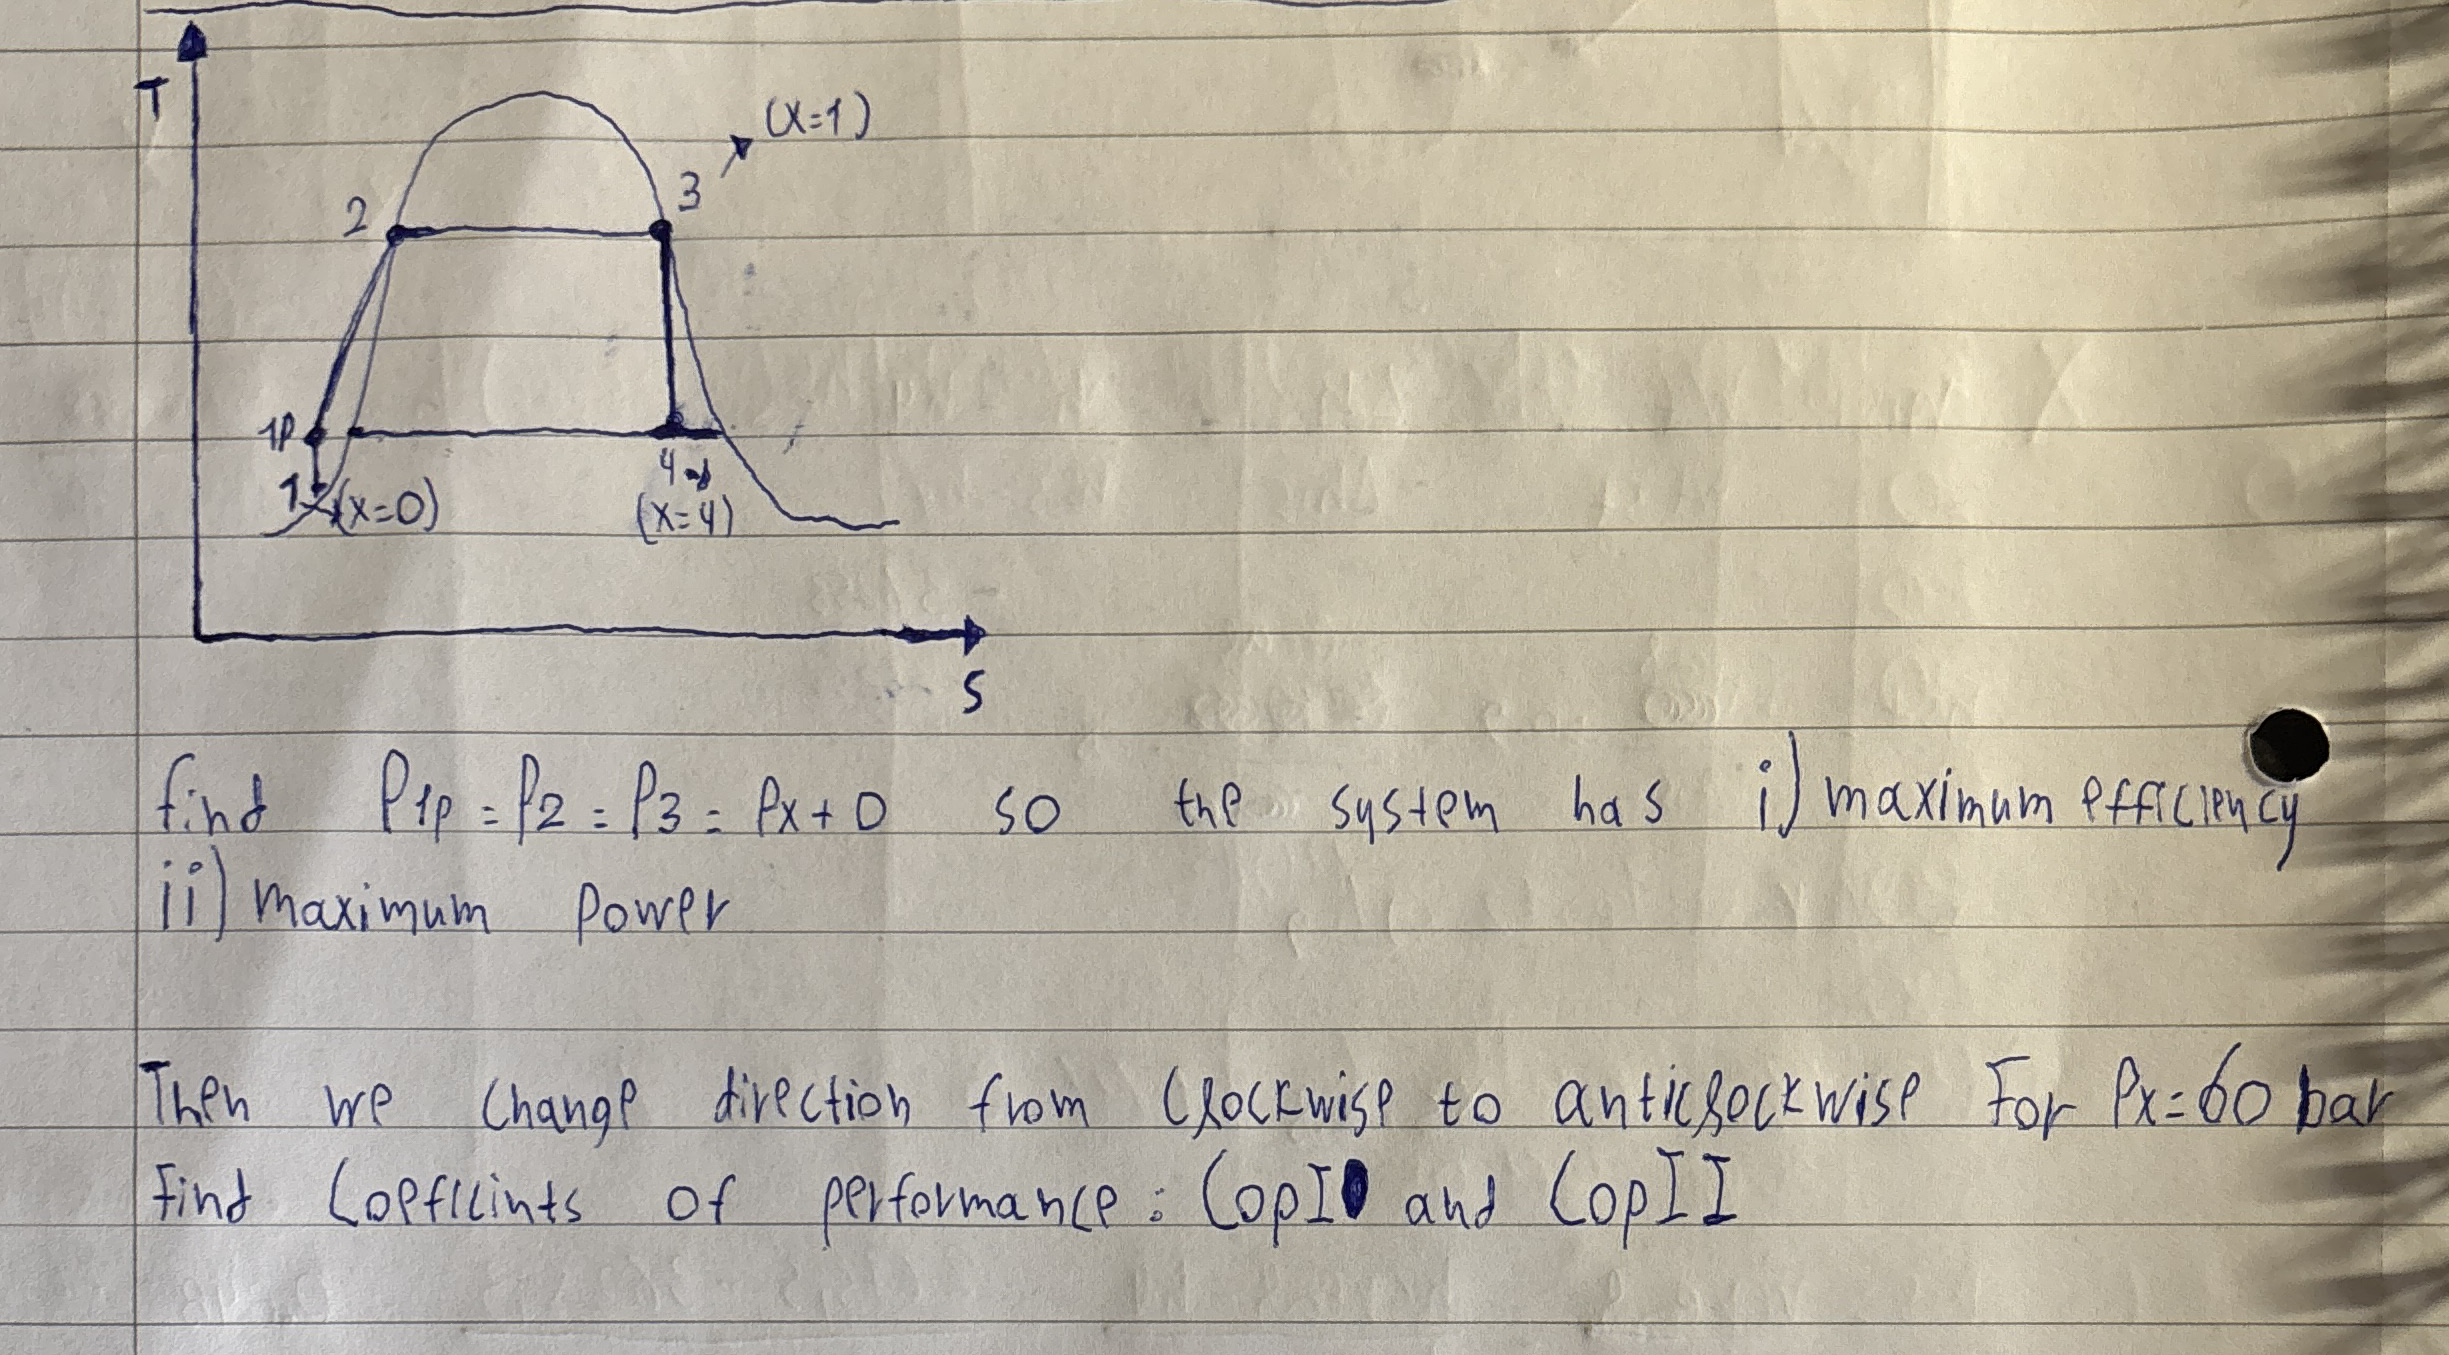 T
(x=1)
2
3
1p
1
(x=0)
4
(x=4)
S
find P1p = P2 = P3 = Px+0 so the system has i) maximum efficiency
ii) maximum power
Then we change direction from clockwise to anticlockwise For Px=60 bar
Find Coefficints of performance: CopI and CopII